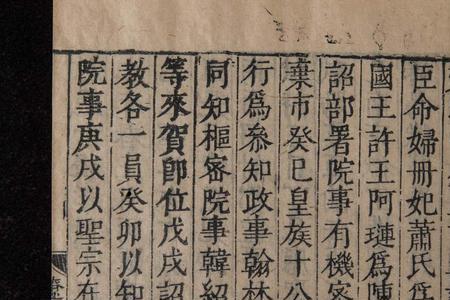 臣命婦冊妃蕭氏為
國王許王阿璉為陳
詔部署院事有機密
棄市癸巳皇族十公
行為叅知政事翰林
同知樞密院事韓紹
等來賀即位戊戌詔
教各一員癸卯以知
院事庚戌以聖宗在